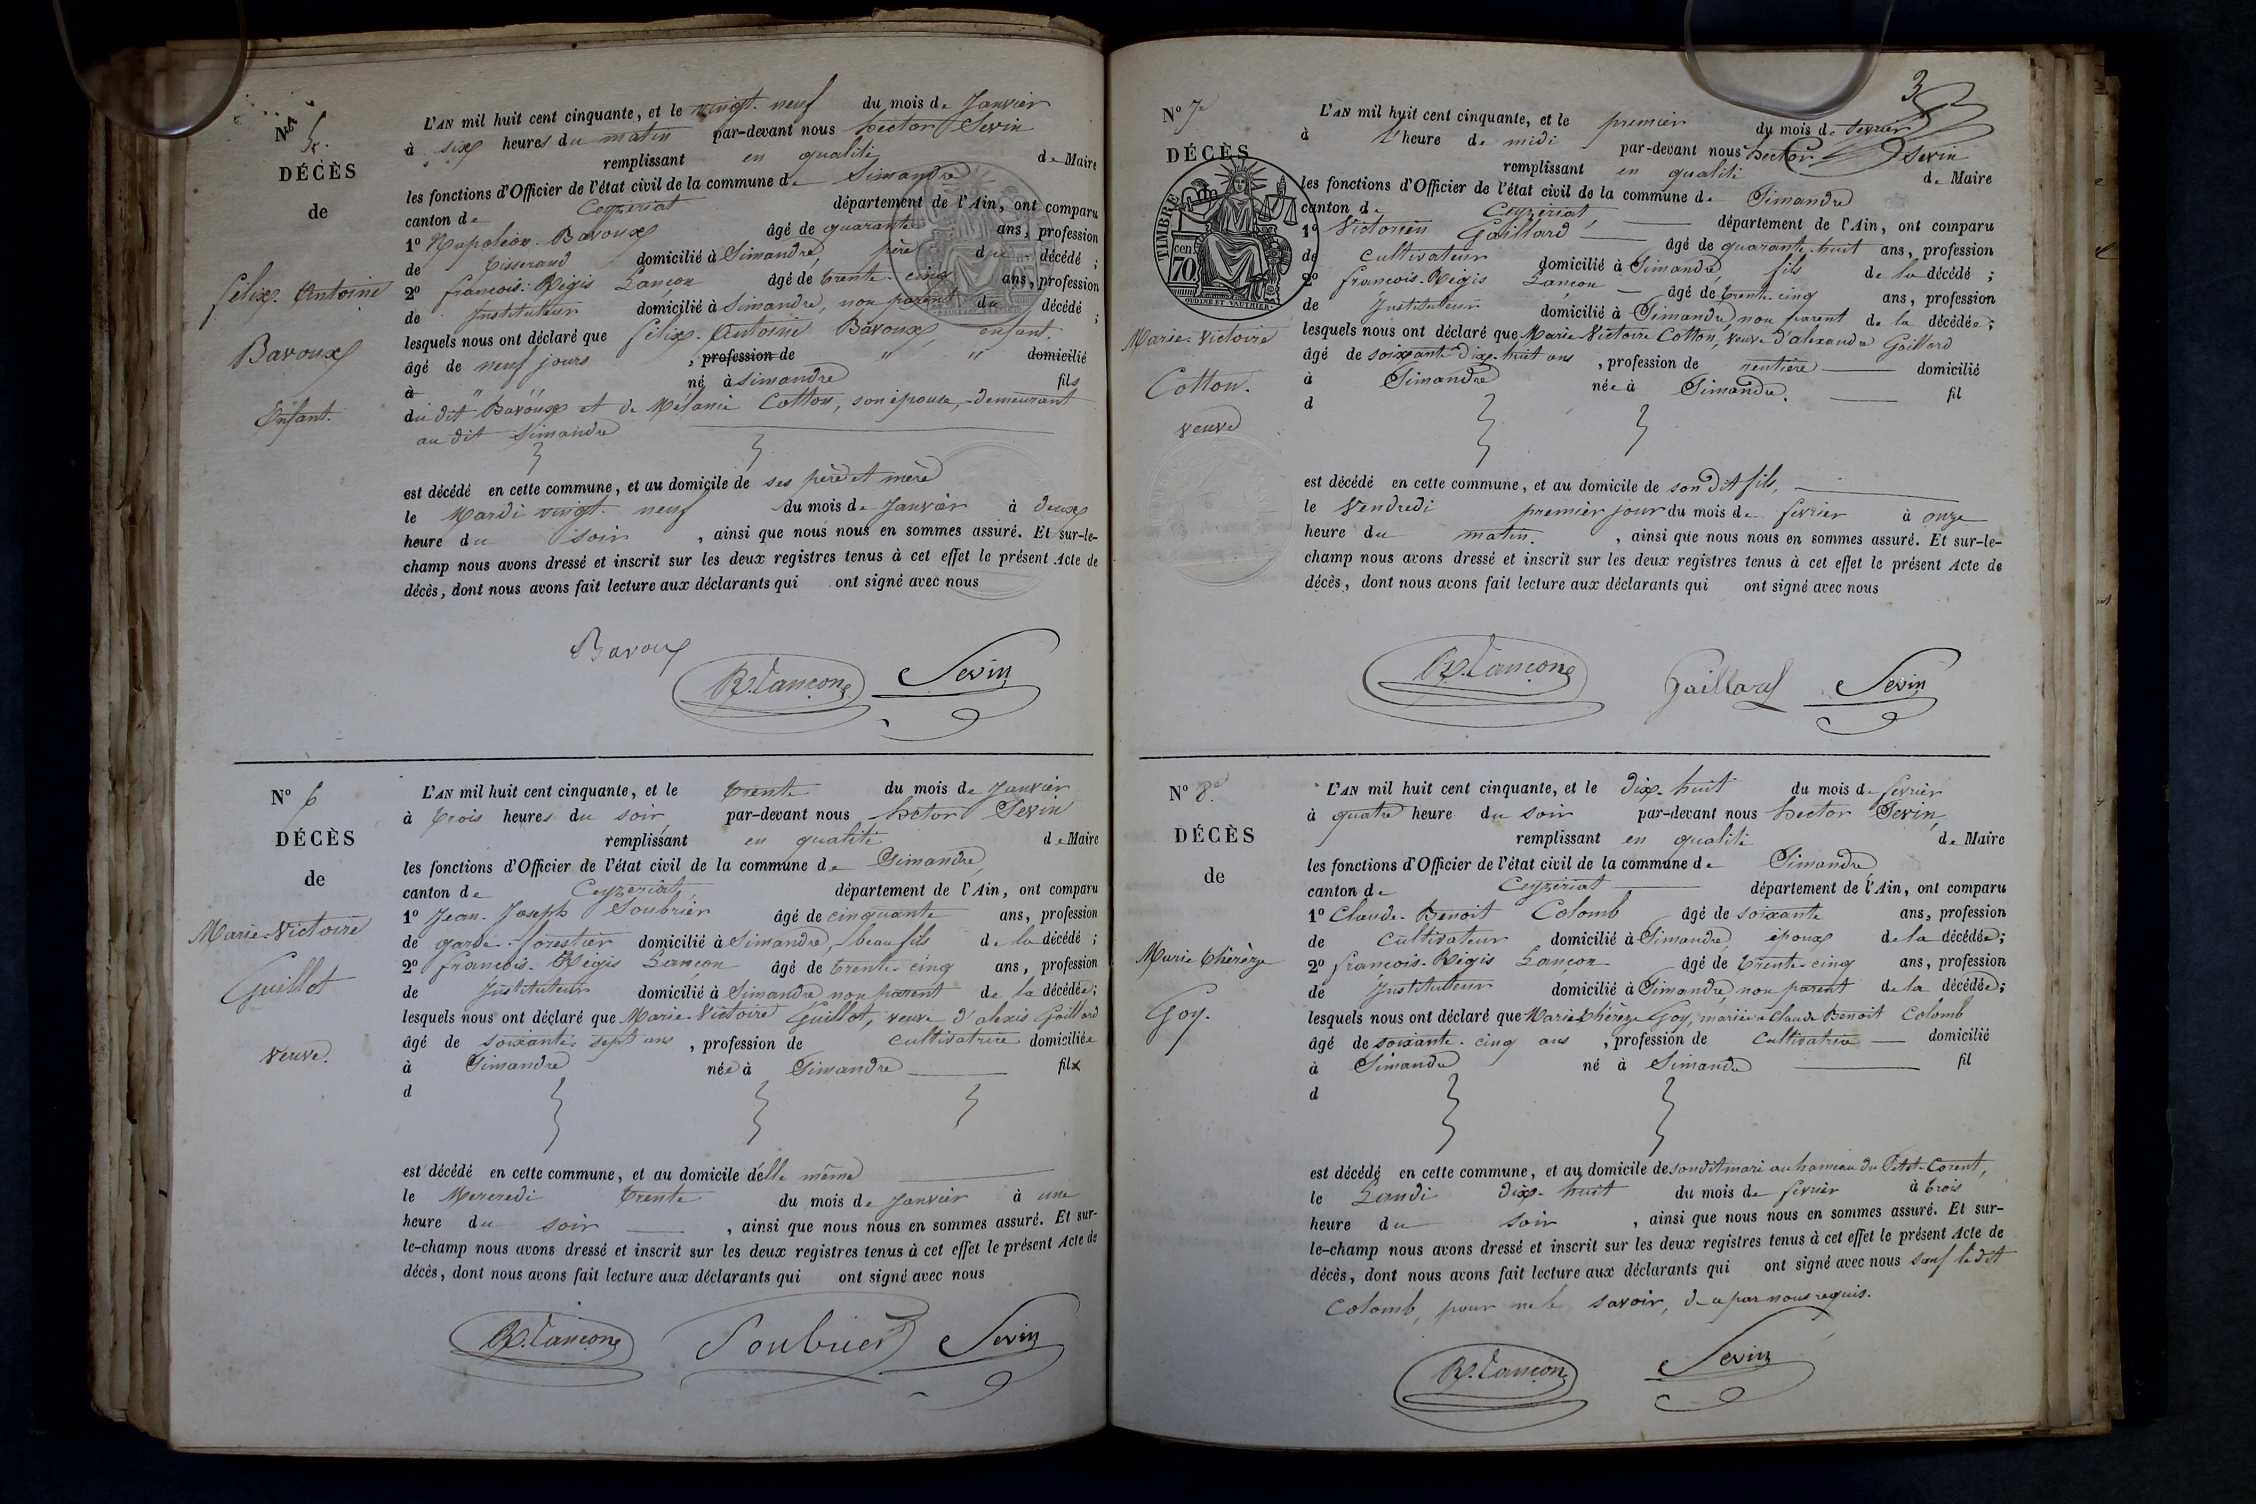 N° 5.
DÉCÈS
de
Félix-Antoine
Bavoux
Enfant.
L'AN mil huit cent cinquante, et le vingt-neuf du mois de Janvier
à six heures du matin par-devant nous hector Sevin
remplissant en qualité de Maire
les fonctions d'Officier de l'état civil de la commune de Simandre
canton de Ceyzeriat département de l'Ain, ont comparu
1° Napoléon Bavoux âgé de quarante ans, profession
de tisserand domicilié à Simandre, père du décédé ;
2° françois-Régis Lançon âgé de trente-cinq ans, profession
de Instituteur domicilié à Simandre, non parent du décédé ;
lesquels nous ont déclaré que félix-Antoine Bavoux, enfant.
âgé de neuf jours , profession de " " domicilié
à " " né à Simandre fils
du dit Bavoux et de Mélanie Cotton, son épouse, demeurant
au dit Simandre
est décédé en cette commune, et au domicile de ses père et mère
le Mardi vingt-neuf du mois de Janvier à deux
heure du soir , ainsi que nous nous en sommes assuré. Et sur-le-
champ nous avons dressé et inscrit sur les deux registres tenus à cet effet le présent Acte de
décès, dont nous avons fait lecture aux déclarants qui ont signé avec nous
Bavoux
R. Lançon Sevin
N° 6
DÉCÈS
de
Marie-Victoire
Guillot
veuve.
L'AN mil huit cent cinquante, et le trente du mois de Janvier
à trois heures du soir par-devant nous hector Sevin
remplissant en qualité de Maire
les fonctions d'Officier de l'état civil de la commune de Simandre
canton de Ceyzeriat département de l'Ain, ont comparu
1° Jean-Joseph Soubrier âgé de cinquante ans, profession
de garde-forestier domicilié à Simandre, beau fils de la décédé ;
2° françois-Régis Lançon âgé de trente-cinq ans, profession
de Instituteur domicilié à Simandre non parent de la décédée ;
lesquels nous ont déclaré que Marie-Victoire Guillot, veuve d'alexis Gaillard
âgé de soixante-sept ans , profession de cultivatrice domiciliée
à Simandre née à Simandre fil
d
est décédé en cette commune, et au domicile d'elle même
le Mercredi trente du mois de Janvier à une
heure du soir , ainsi que nous nous en sommes assuré. Et sur-
le-champ nous avons dressé et inscrit sur les deux registres tenus à cet effet le présent Acte de
décès, dont nous avons fait lecture aux déclarants qui ont signé avec nous
R. Lançon Soubrier Sevin
3
N° 7e
DÉCÈS
TIMBRE
cen
70
OUDINE ET VAUTHIER
Marie-Victoire
Cotton.
veuve
L'AN mil huit cent cinquante, et le premier du mois de fevrier
à l'heure de midi par-devant nous hector Sevin
remplissant en qualité de Maire
les fonctions d'Officier de l'état civil de la commune de Simandre
canton de Ceyzeriat, département de l'Ain, ont comparu
1° Victorien Gaillard âgé de quarante-huit ans, profession
de cultivateur domicilié à Simandre, fils de la décédé ;
2° françois-Régis Lançon âgé de trente-cinq ans, profession
de Instituteur domicilié à Simandre non parent de la décédée ;
lesquels nous ont déclaré que Marie-Victoire Cotton, veuve d'alexandre Gaillard
âgé de soixante dix-huit ans , profession de rentière domicilié
à Simandre née à Simandre. fil
d
est décédé en cette commune, et au domicile de son dit fils,
le Vendredi premier jour du mois de fevrier à onze
heure du matin. , ainsi que nous nous en sommes assuré. Et sur-le-
champ nous avons dressé et inscrit sur les deux registres tenus à cet effet le présent Acte de
décès, dont nous avons fait lecture aux déclarants qui ont signé avec nous
R. Lançon Gaillard Sevin
N° 8e
DÉCÈS
de
Marie thérèze
Goy.
L'AN mil huit cent cinquante, et le dix-huit du mois de fevrier
à quatre heure du soir par-devant nous hector Sevin,
remplissant en qualité de Maire
les fonctions d'Officier de l'état civil de la commune de Simandre
canton de Ceyzériat département de l'Ain, ont comparu
1° Claude-Benoit Colomb âgé de soixante ans, profession
de cultivateur domicilié à Simandre, époux de la décédée ;
2° françois-Régis Lançon âgé de trente-cinq ans, profession
de Instituteur domicilié à Simandre, non parent de la décédée ;
lesquels nous ont déclaré que Marie thérèze Goy, mariée à Claude Benoit Colomb
âgé de soixante-cinq ans , profession de Cultivatrice domicilié
à Simandre né à Simandre fil
d
est décédé en cette commune, et au domicile de son dit mari au hameau du Petit-Corent,
le Lundi dix-huit du mois de fevrier à trois
heure du soir , ainsi que nous nous en sommes assuré. Et sur-
le-champ nous avons dressé et inscrit sur les deux registres tenus à cet effet le présent Acte de
décès, dont nous avons fait lecture aux déclarants qui ont signé avec nous sauf le dit
Colomb, pour ne le savoir, de ce par nous requis.
R. Lançon Sevin